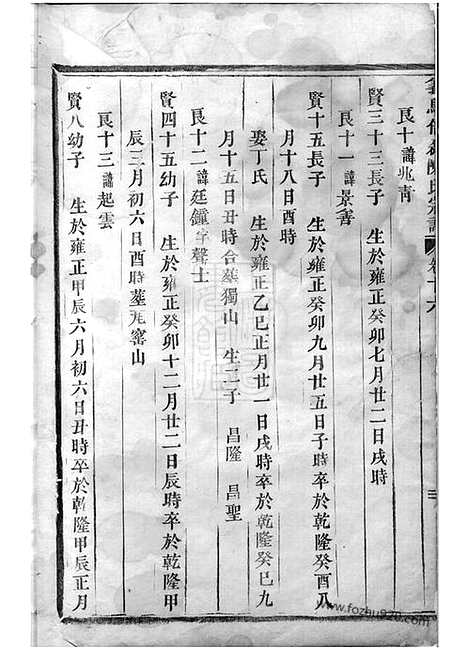 卷十六
艮十諱兆青
賢三十三長子 生於雍正癸卯七月廿二日戌時
艮十一諱景耆
賢十五長子 生於雍正癸卯九月廿五日子時卒於乾隆癸酉八
月十八日酉時
娶丁氏 生於雍正乙巳正月廿一日戌時卒於乾隆癸巳九
月十五日丑時合葬獨山 生二子 昌隆 昌聖
艮十二諱廷鐘字聲士
賢四十五幼子 生於雍正癸卯十二月廿二日辰時卒於乾隆甲
辰三月初六日酉時葬瓦窰山
艮十三諱起雲
賢八幼子 生於雍正甲辰六月初六日丑時卒於乾隆甲辰正月
www.fozhu920.com